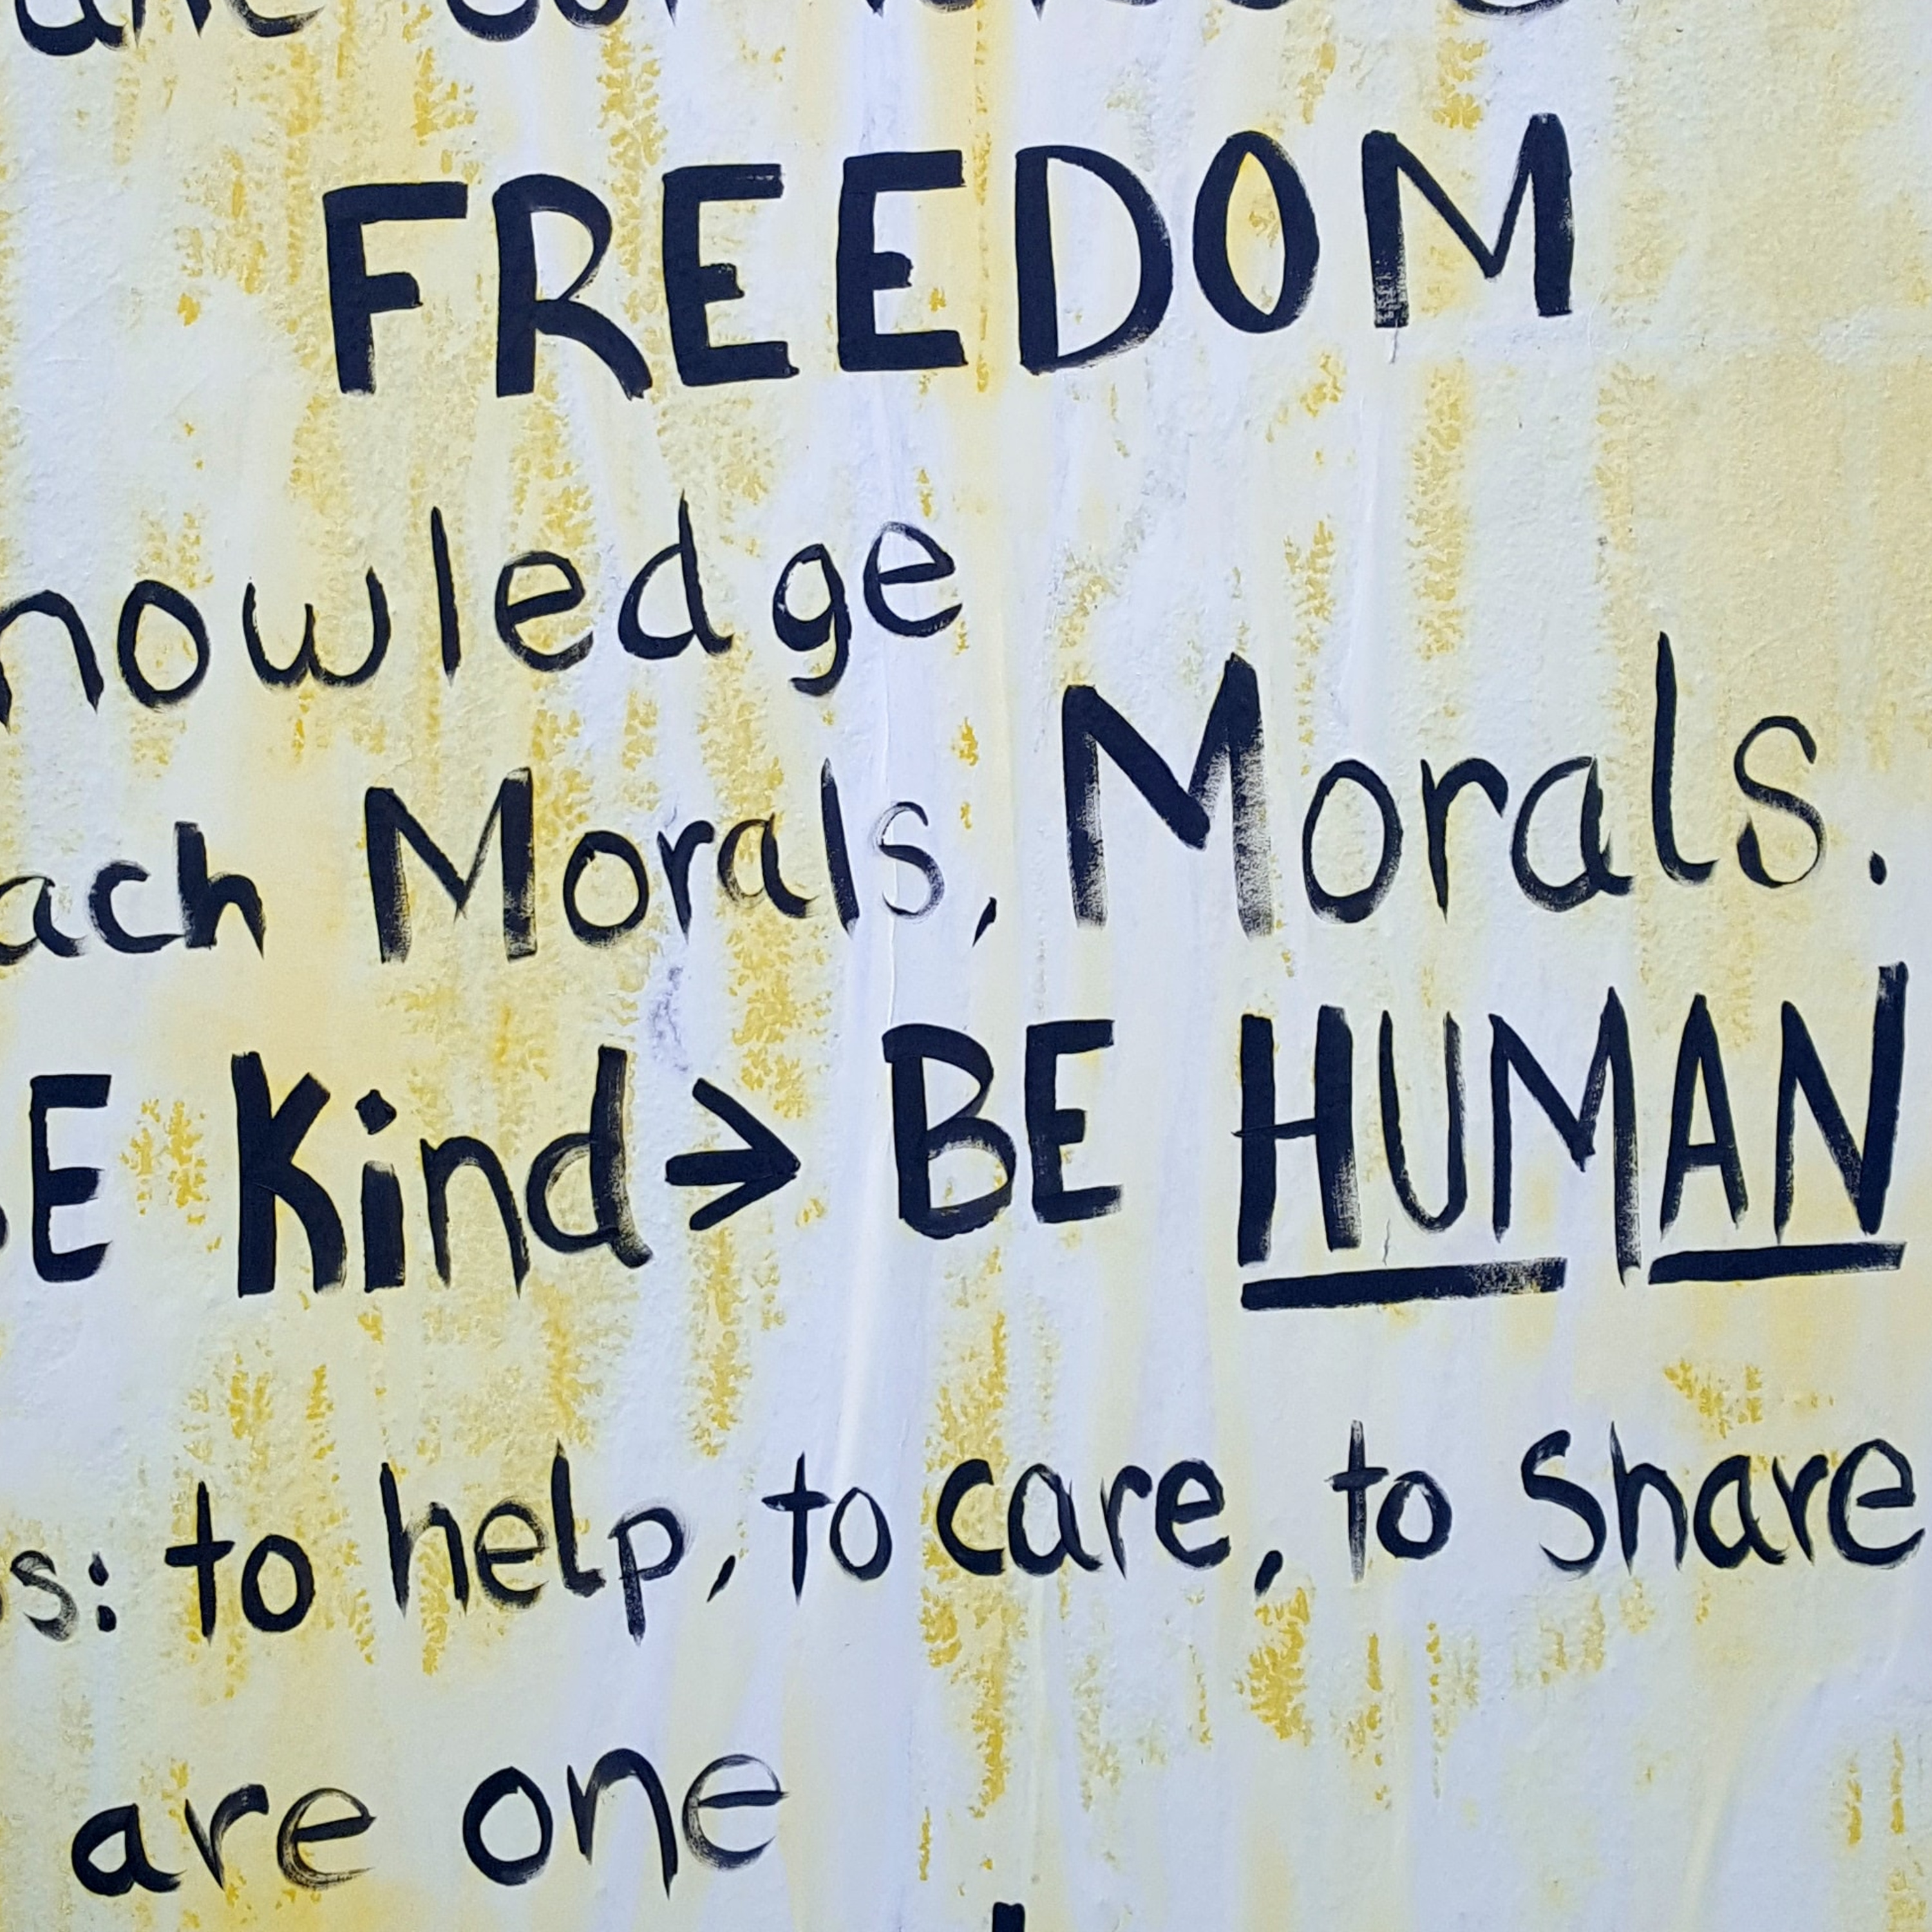 FREEDOM
nowledge
ach Morals, Morals.
E Kind> BE HUMAN
s: to help, to care, to share
are one